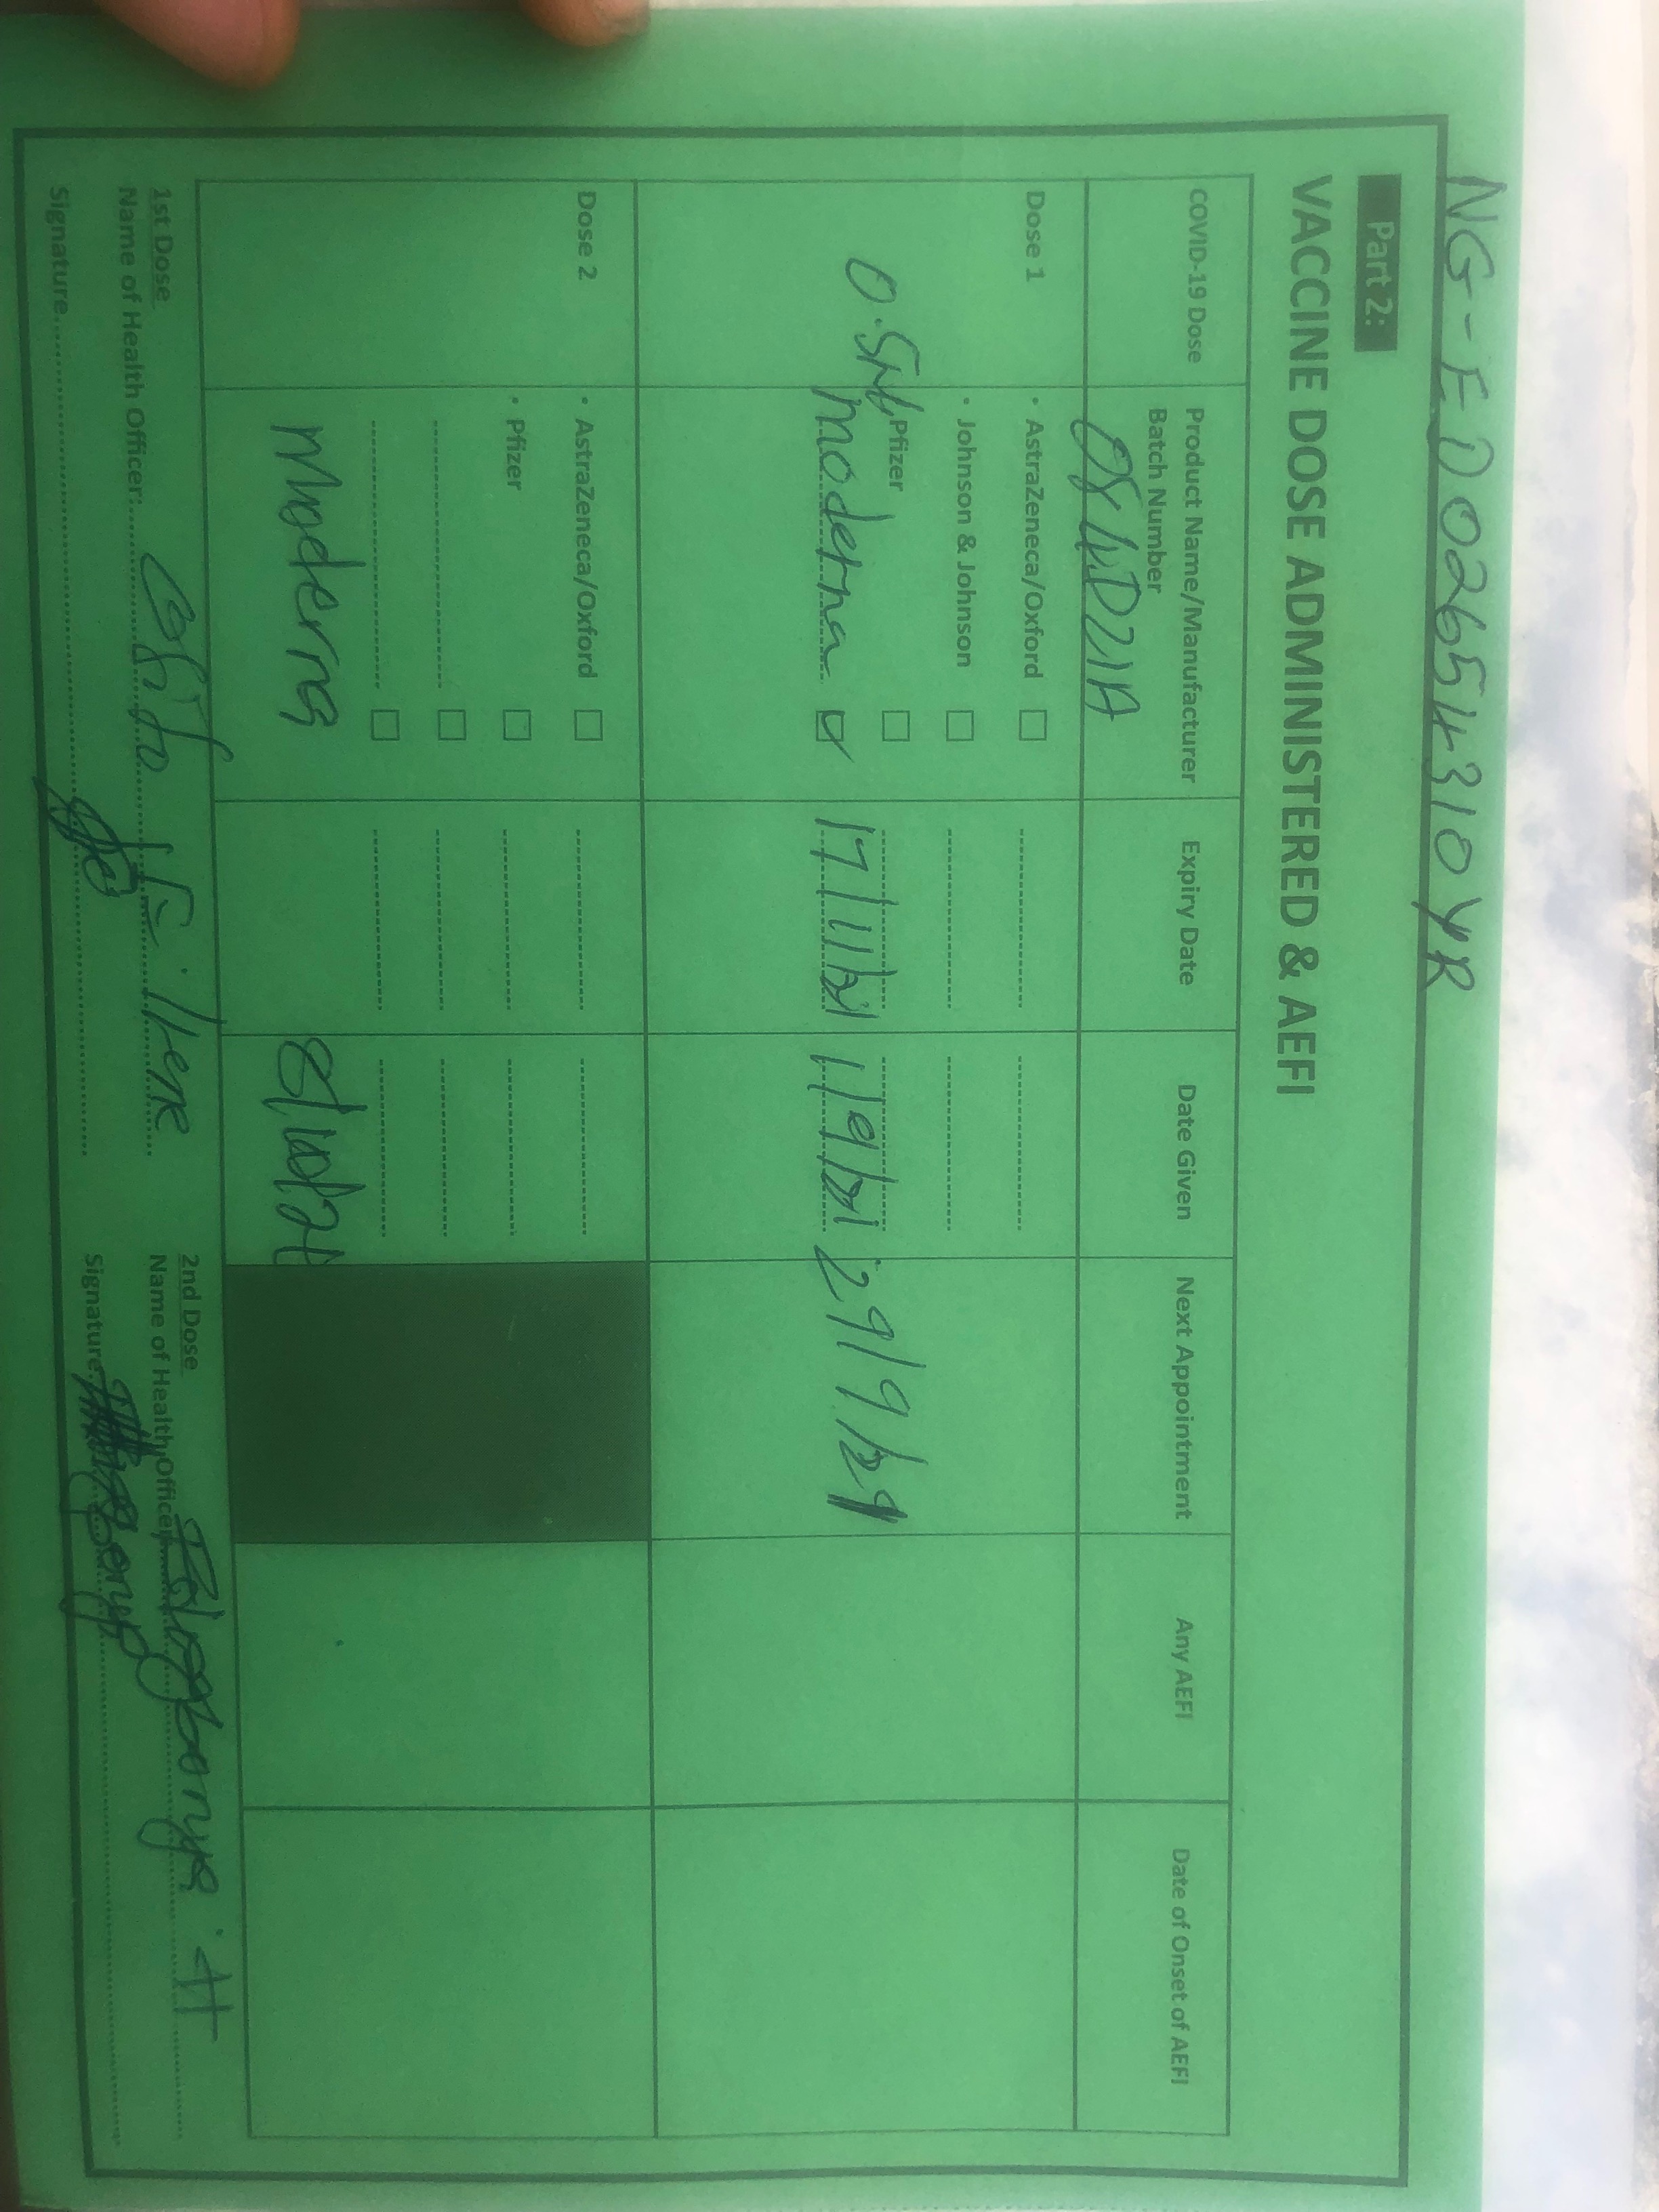 NG-ED0265431OYR
Part 2:
VACCINE DOSE ADMINISTERED & AEFI
COVID-19 Dose
Product Name/Manufacturer
Batch Number
Expiry Date
Date Given
Next Appointment
Any AEFI
Date of Onset of AEFI
Dose 1
• AstraZeneca/Oxford
• Johnson & Johnson
Pfizer
moderna 17/11/21 1/9/21 29/9/21
Dose 2
• AstraZeneca/Oxford
• Pfizer
Moderna
1st Dose
Name of Health Officer:
Signature
2nd Dose
Name of Health Officer
Signature